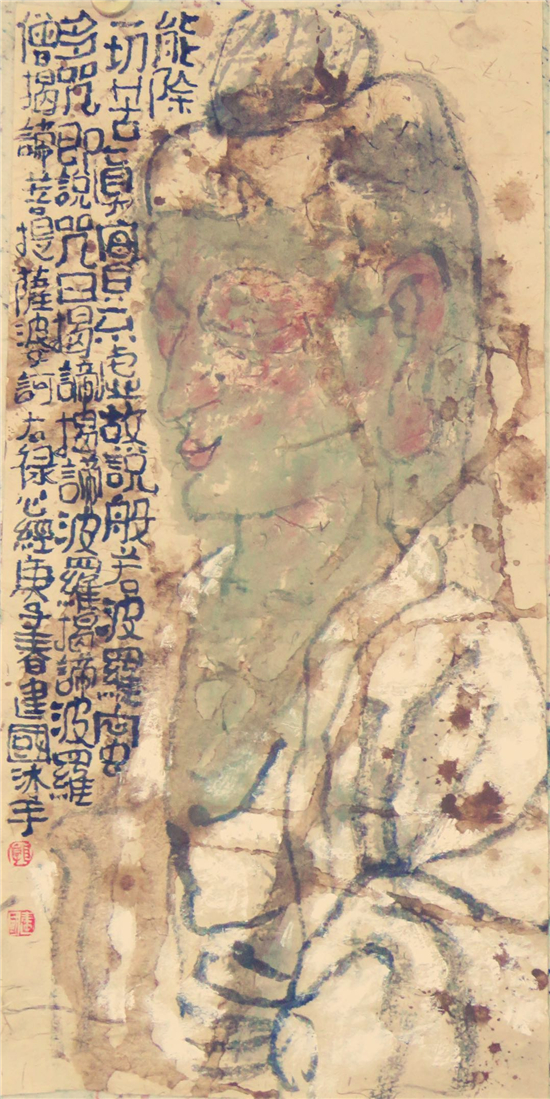 能除
一切苦真實不虛故說般若波羅蜜
多咒即說咒曰揭諦揭諦波羅揭諦波羅
僧揭諦菩提薩婆訶右禄心經庚子春建國沐手